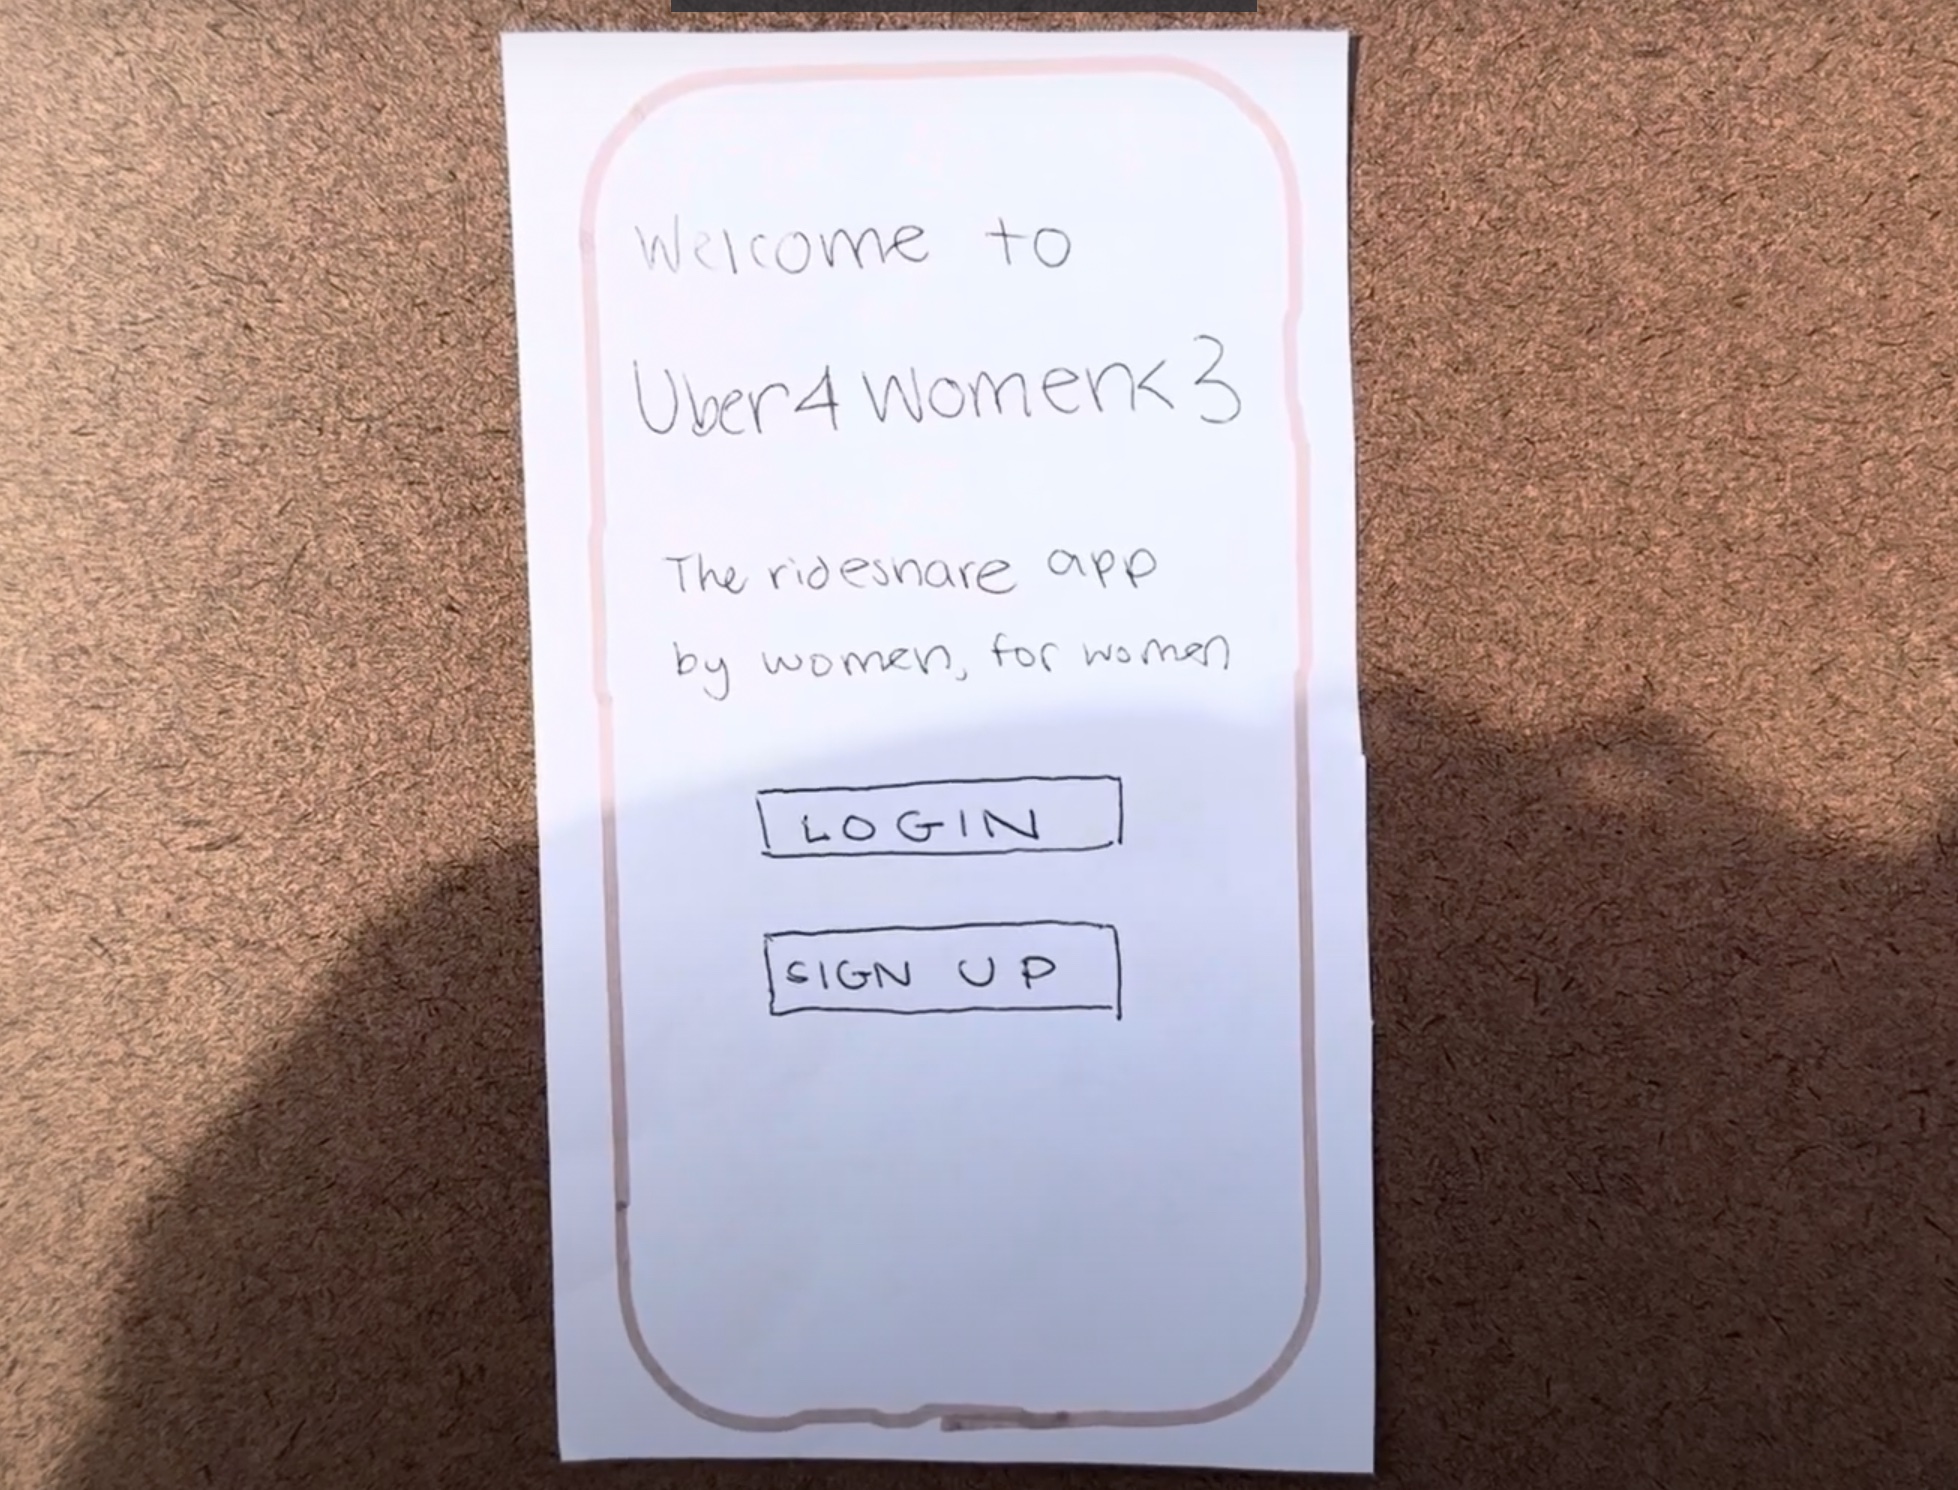 Welcome to
Uber4Women<3
The rideshare app
by women, for women
LOGIN
SIGN UP